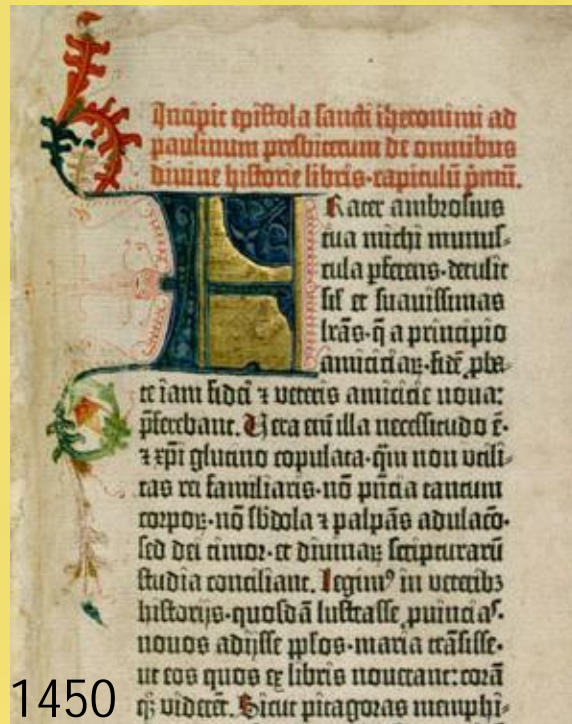 Incipit epistola sancti iheronimi ad
paulinum presbiterum de omnibus
divine historie libris·capitulū p̄mū.
FRater ambrosius
tua michi munus-
cula ꝑferens·detulit
sil̄ et suavissimas
lr̄as·q̄ a principio
amicitiaꝝ·fidē ꝓba-
te iam fidei ⁊ veteris amicicie nova:
p̄ferebant. Vera em̄ illa necessitudo ē·
⁊ xp̄i glutino copulata·q̄m non utili-
tas rei familiaris·nō p̄ncia tantum
corpoꝝ·nō sb̄dola ⁊ palpās adulac̄o·
sed dei timor·et divinaꝝ scripturarū
studia conciliant. Legimꝰ in veteribꝫ
historijs·quosdā lustrasse ꝓvincias·
novos adijsse ppl̄os·maria trāsisse·
ut eos quos ex libris noverant: corā
qꝫ viderēt. Sicut pitagoras memphi-
1450